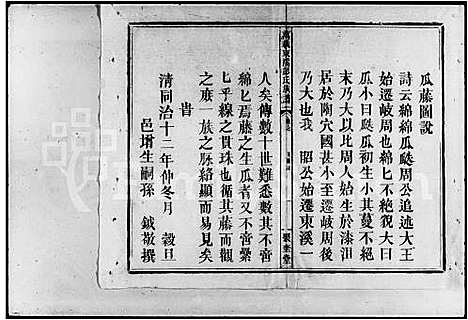 瓜藤圖說
詩云綿綿瓜瓞周公追述大王
始遷岐周而曰綿匕不絕貌大曰
瓜小曰瓞瓜初生小其蔓不絕
末乃大以比周人始生於漆沮
居於陶穴國甚小至遷岐周後
乃大也我 昭公始遷東溪一
人矣傳數十世難悉數其不啻
綿匕焉藤之生瓜者又不啻纍
匕乎線之貫珠也循其藤而觀
之庶一族之脈絡顯而易見矣
旹
清同治十二年仲冬月 穀旦
邑壻生嗣孫 鉞敬撰